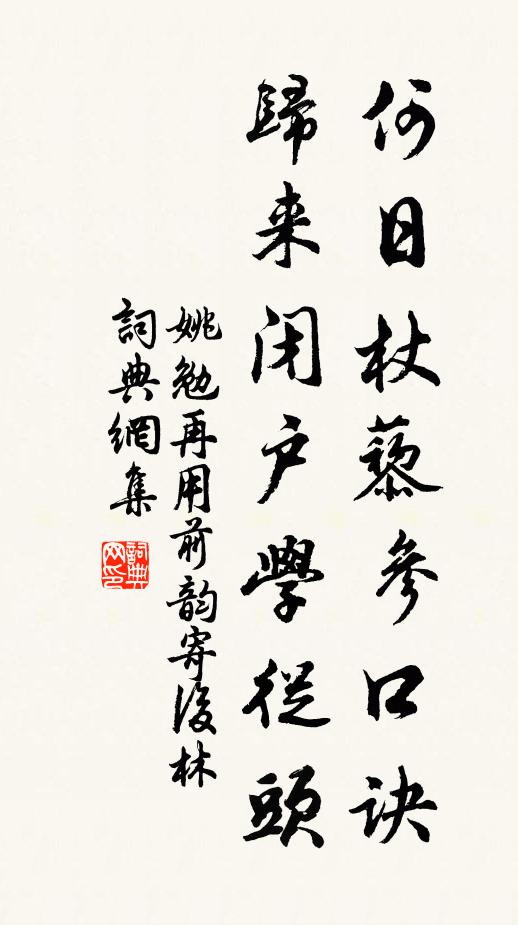 何日杖藜參口訣
歸来闭户學從頭
姚勉再用前韵寄後林
詞典網集
詞典网印